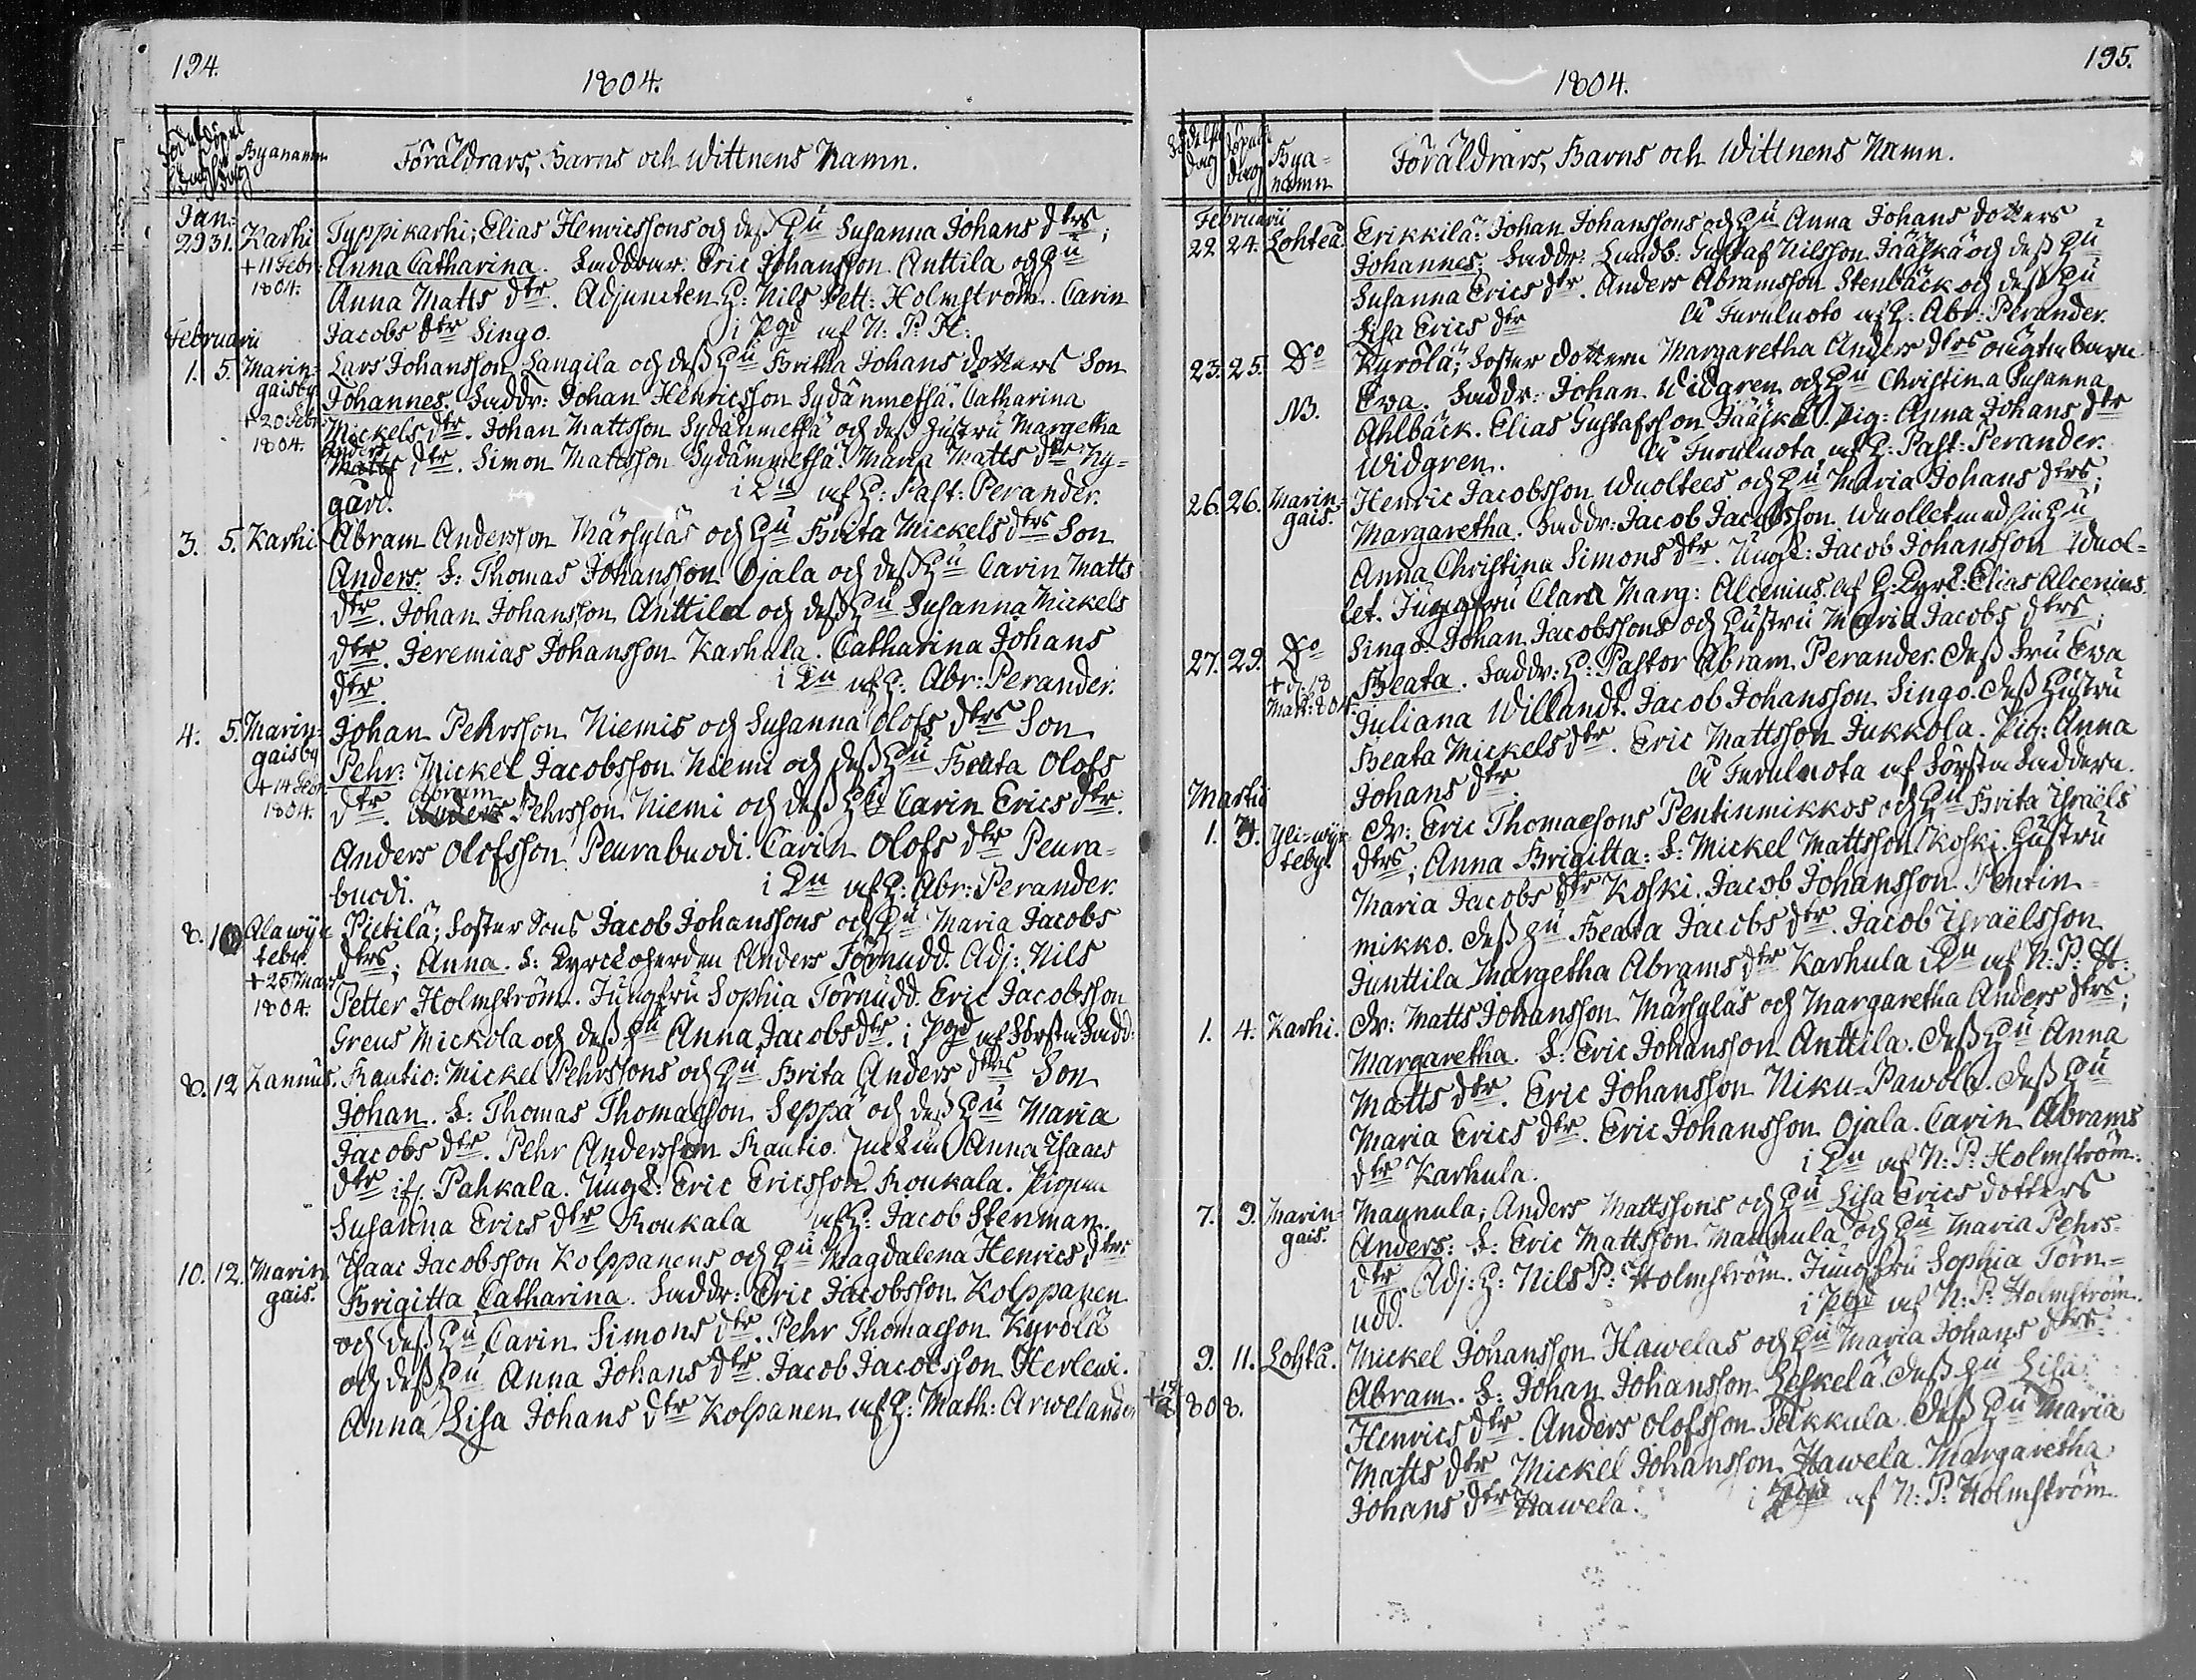 194.
1804.
Födelse dag Döpelse dag Byanamn Föräldrars, Barns och Wittnens Namn.
Jan:
29 31. Karhi Typpikarhi; Elias Henricssons och deß Hu Susanna Johans dtrs;
+ 11 Febr: 1804. Anna Catharina. Faddrar: Eric Johansson Anttila och Hu
Anna Matts dtr. Adjuncten H: Nils Pett: Holmström. Carin
Jacobs dtr Singo. i Pgd af N: P: H:
Februarii
1. 5. Marin= Lars Johansson Langila och deß Hu Britha Johans dotters Son
gaisby Johannes. Faddr: Johan Henricsson Sydänmetsä. Catharina
+ 20 Febr: Mickels dtr. Johan Mattsson Sydänmetsä och deß Hustru Margetha
1804. Anders
Matts dtr. Simon Mattsson Sydänmetsä. Maria Matts dtr Ny=
gård. i Ku af H: Past: Perander.
3. 5. Karhi Abram Andersson Märsyläs och Hu Brita Mickels dtrs Son
Anders. F: Thomas Johansson Ojala och deß Hu Carin Matts
dtr. Johan Johansson Anttila och deß Hu Susanna Mickels
dtr. Jeremias Johansson Karhula. Catharina Johans
dtr. i Ku af H: Abr: Perander.
4. 5. Marin= Johan Pehrsson Niemis och Susanna Olofs dtrs Son
gaisby Pehr: Mickel Jacobsson Niemi och deß Hu Beata Olofs
+ 14 Febr. Abram
1804. dtr. Anders Pehrsson Niemi och deß Hu Carin Erics dtr.
Anders Olofsson Peurabuodi. Carin Olofs dtr Peura=
buodi. i Ku af H: Abr: Perander.
8. 10 Alawyi Pietilä; Foster Sons Jacob Johanssons och Hu Maria Jacobs
teby. dtrs; Anna. F: Kyrckoherden Anders Törnudd. Adj: Nils
+ 25 Mars
1804. Petter Holmström. Jungfru Sophia Törnudd. Eric Jacobsson
Greus Mickola och deß Hu Anna Jacobs dtr. i Pgd af första Fadd:
8. 12 Lannus. Rautio: Mickel Pehrssons och Hu Brita Anders dtrs Son
Johan. F: Thomas Thomasson Seppä och deß Hu Maria
Jacobs dtr. Pehr Andersson Rautio. Anna Isaacs
dtr Pahkala. Ungk: Eric Ericsson Roukala. Pigan
Susanna Erics dtr Roukala af H: Jacob Stenman.
10. 12. Marin Isaac Jacobsson Kolppanens och Hu Magdalena Henrics dtrs
gais. Brigitta Catharina. Faddr: Eric Jacobsson Kolppanen
och deß Hu Carin Simons dtr. Pehr Thomasson Kyrölä
och deß Hu Anna Johans dtr. Jacob Jacobsson Herlewi.
Anna Lisa Johans dtr Kolpanen af H: Math: Arwelander
195.
1804.
Födelse dag Döpelse dag Bya=namn Föräldrars, Barns och Wittnens Namn.
Februarii
22. 24. Lohteå Erikkilä: Johan Johanssons och Hu Anna Johans dotters
Johannes; Faddr: Landb: Gustaf Nilsson Jääskä och deß Hu
Susanna Erics dtr. Anders Abramsson Stenbäck och deß Hu
Lisa Erics dtr å Turuluoto af H: Abr: Perander.
23. 25. Do Kyrölä; Foster dottern Margaretha Anders dtrs oägta barn
NB. Eva. Faddr: Johan Widgren och Hu Christina Susanna
Ahlbäck. Elias Gustafsson Jääskä. Pig: Anna Johans dtr
Widgren. å Turuluota af H: Past: Perander.
26. 26. Marin= Henric Jacobsson Wuoltees och Hu Maria Johans dtrs;
gais. Margaretha. Faddr: Jacob Jacobsson Wuollet med sin Hu
Anna Christina Simons dtr. Ungk: Jacob Johansson Wuol=
let. Jungfru Clara Marg: Alcenius. af H: Kyrk: Elias Alcenius.
27. 29. Do Singo. Johan Jacobssons och Hustru Maria Jacobs dtrs,
+ d. 18
Mart: 804. Beata. Faddr: H: Pastor Abram Perander. deß Fru Eva
Juliana Willandt. Jacob Johansson Singo. deß Hustru
Beata Mickels dtr. Eric Mattsson Jukkola. Pig: Anna
Johans dtr. å Turuluota af första Faddern.
Martii
1. 3. Yli=wyi dr: Eric Thomassons Pentinmikkos och Hu Brita Israëls
teby. dtrs; Anna Brigitta: F: Mickel Mattsson Koski. Hustru
Maria Jacobs dtr Koski. Jacob Johansson Pentin=
mikko. deß Hu Beata Jacobs dtr. Jacob Israëlsson
Junttila Margetha Abrams dtr Karhula i Ku af N: P: H:
1. 4. Karhi. dr: Matts Johansson Märsyläs och Margaretha Anders dtrs;
Margaretha. F: Eric Johansson Anttila. deß Hu Anna
Matts dtr. Eric Johansson Niku=Pawola. deß Hu
Maria Erics dtr. Eric Johansson Ojala. Carin Abrams
dtr Karhula. i Ku af N: P: Holmström.
7. 9. Marin= Mannula; Anders Mattssons och Hu Lisa Erics dotters
gais. Anders: F: Eric Mattsson Mannula och Hu Maria Pehrs=
dtr. Adj: H: Nils P: Holmström. Jungfru Sophia Törn=
udd. i Pgd af N: P: Holmström.
9. 11. Lohteå. Mickel Johansson Hawelas och Hu Maria Johans dtrs:
808. Abram. F: Johan Johansson Leskelä. deß Hu Lisa
Henrics dtr. Anders Olofsson Takkula. deß Hu Maria
Matts dtr. Mickel Johansson Hawela. Margaretha
Johans dtr Hawela. i Pgd af N: P: Holmström.